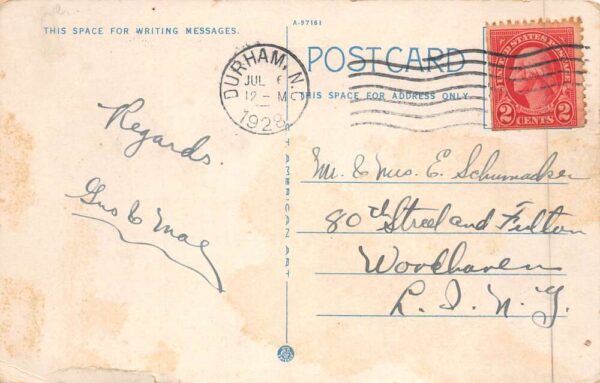 THIS SPACE FOR WRITING MESSAGES.
A-97161
POSTCARD
THIS SPACE FOR ADDRESS ONLY.
DURHAM, N.C.
JUL 6
12 - M
1928
UNITED STATES POSTAGE
2 CENTS 2
Regards.
Gus & Mae
Mr. & Mrs. E. Schumacher
80th Street and Fulton
Woodhaven
L. I. N. Y.